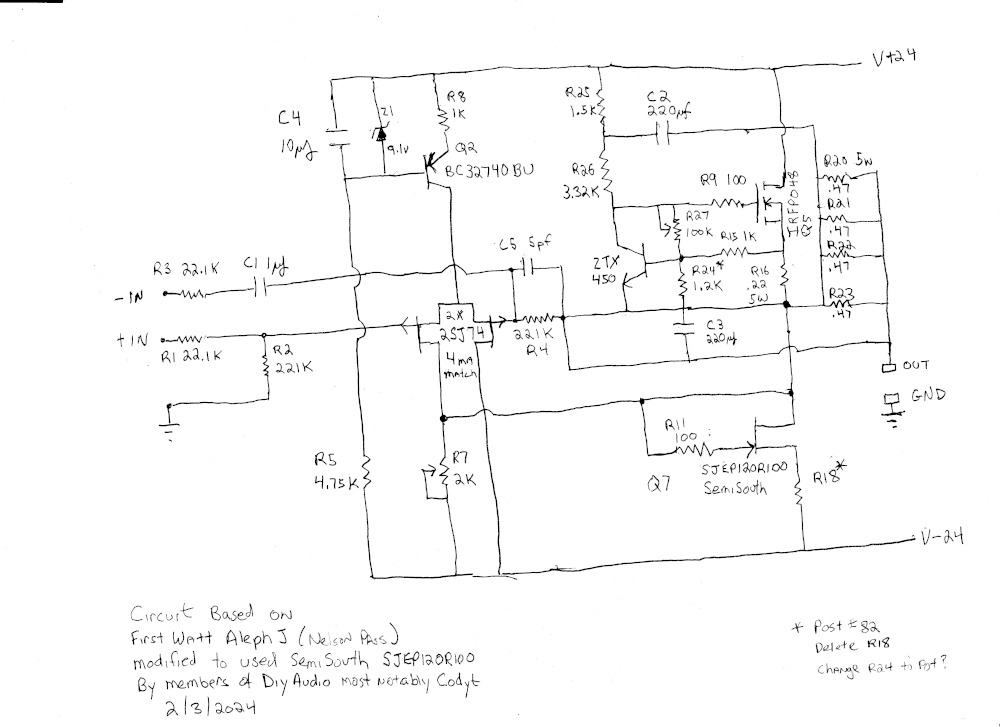 V+24
C4
10µf
Z1
9.1v
R8
1K
Q2
BC32740BU
R25
1.5K
C2
220µf
R26
3.32K
R9 100
R27
100K
IRFP048
Q5
R20 5W
.47
R21
.47
R22
.47
R23
.47
R15 1K
ZTX
450
R24*
1.2K
R16
.22
5W
C5 5pf
R3 22.1K
C1 1µf
-IN
+IN
R1 22.1K
R2
221K
2X
2SJ74
4ma
match
221K
R4
C3
220µf
OUT
GND
R5
4.75K
R7
2K
R11
100
Q7
SJEP120R100
SemiSouth
R18*
V-24
Circuit Based on
First Watt Aleph J (Nelson Pass)
modified to used SemiSouth SJEP120R100
By members of DiyAudio most notably Codyt
2/3/2024
* Post #82
Delete R18
Change R24 to Pot?